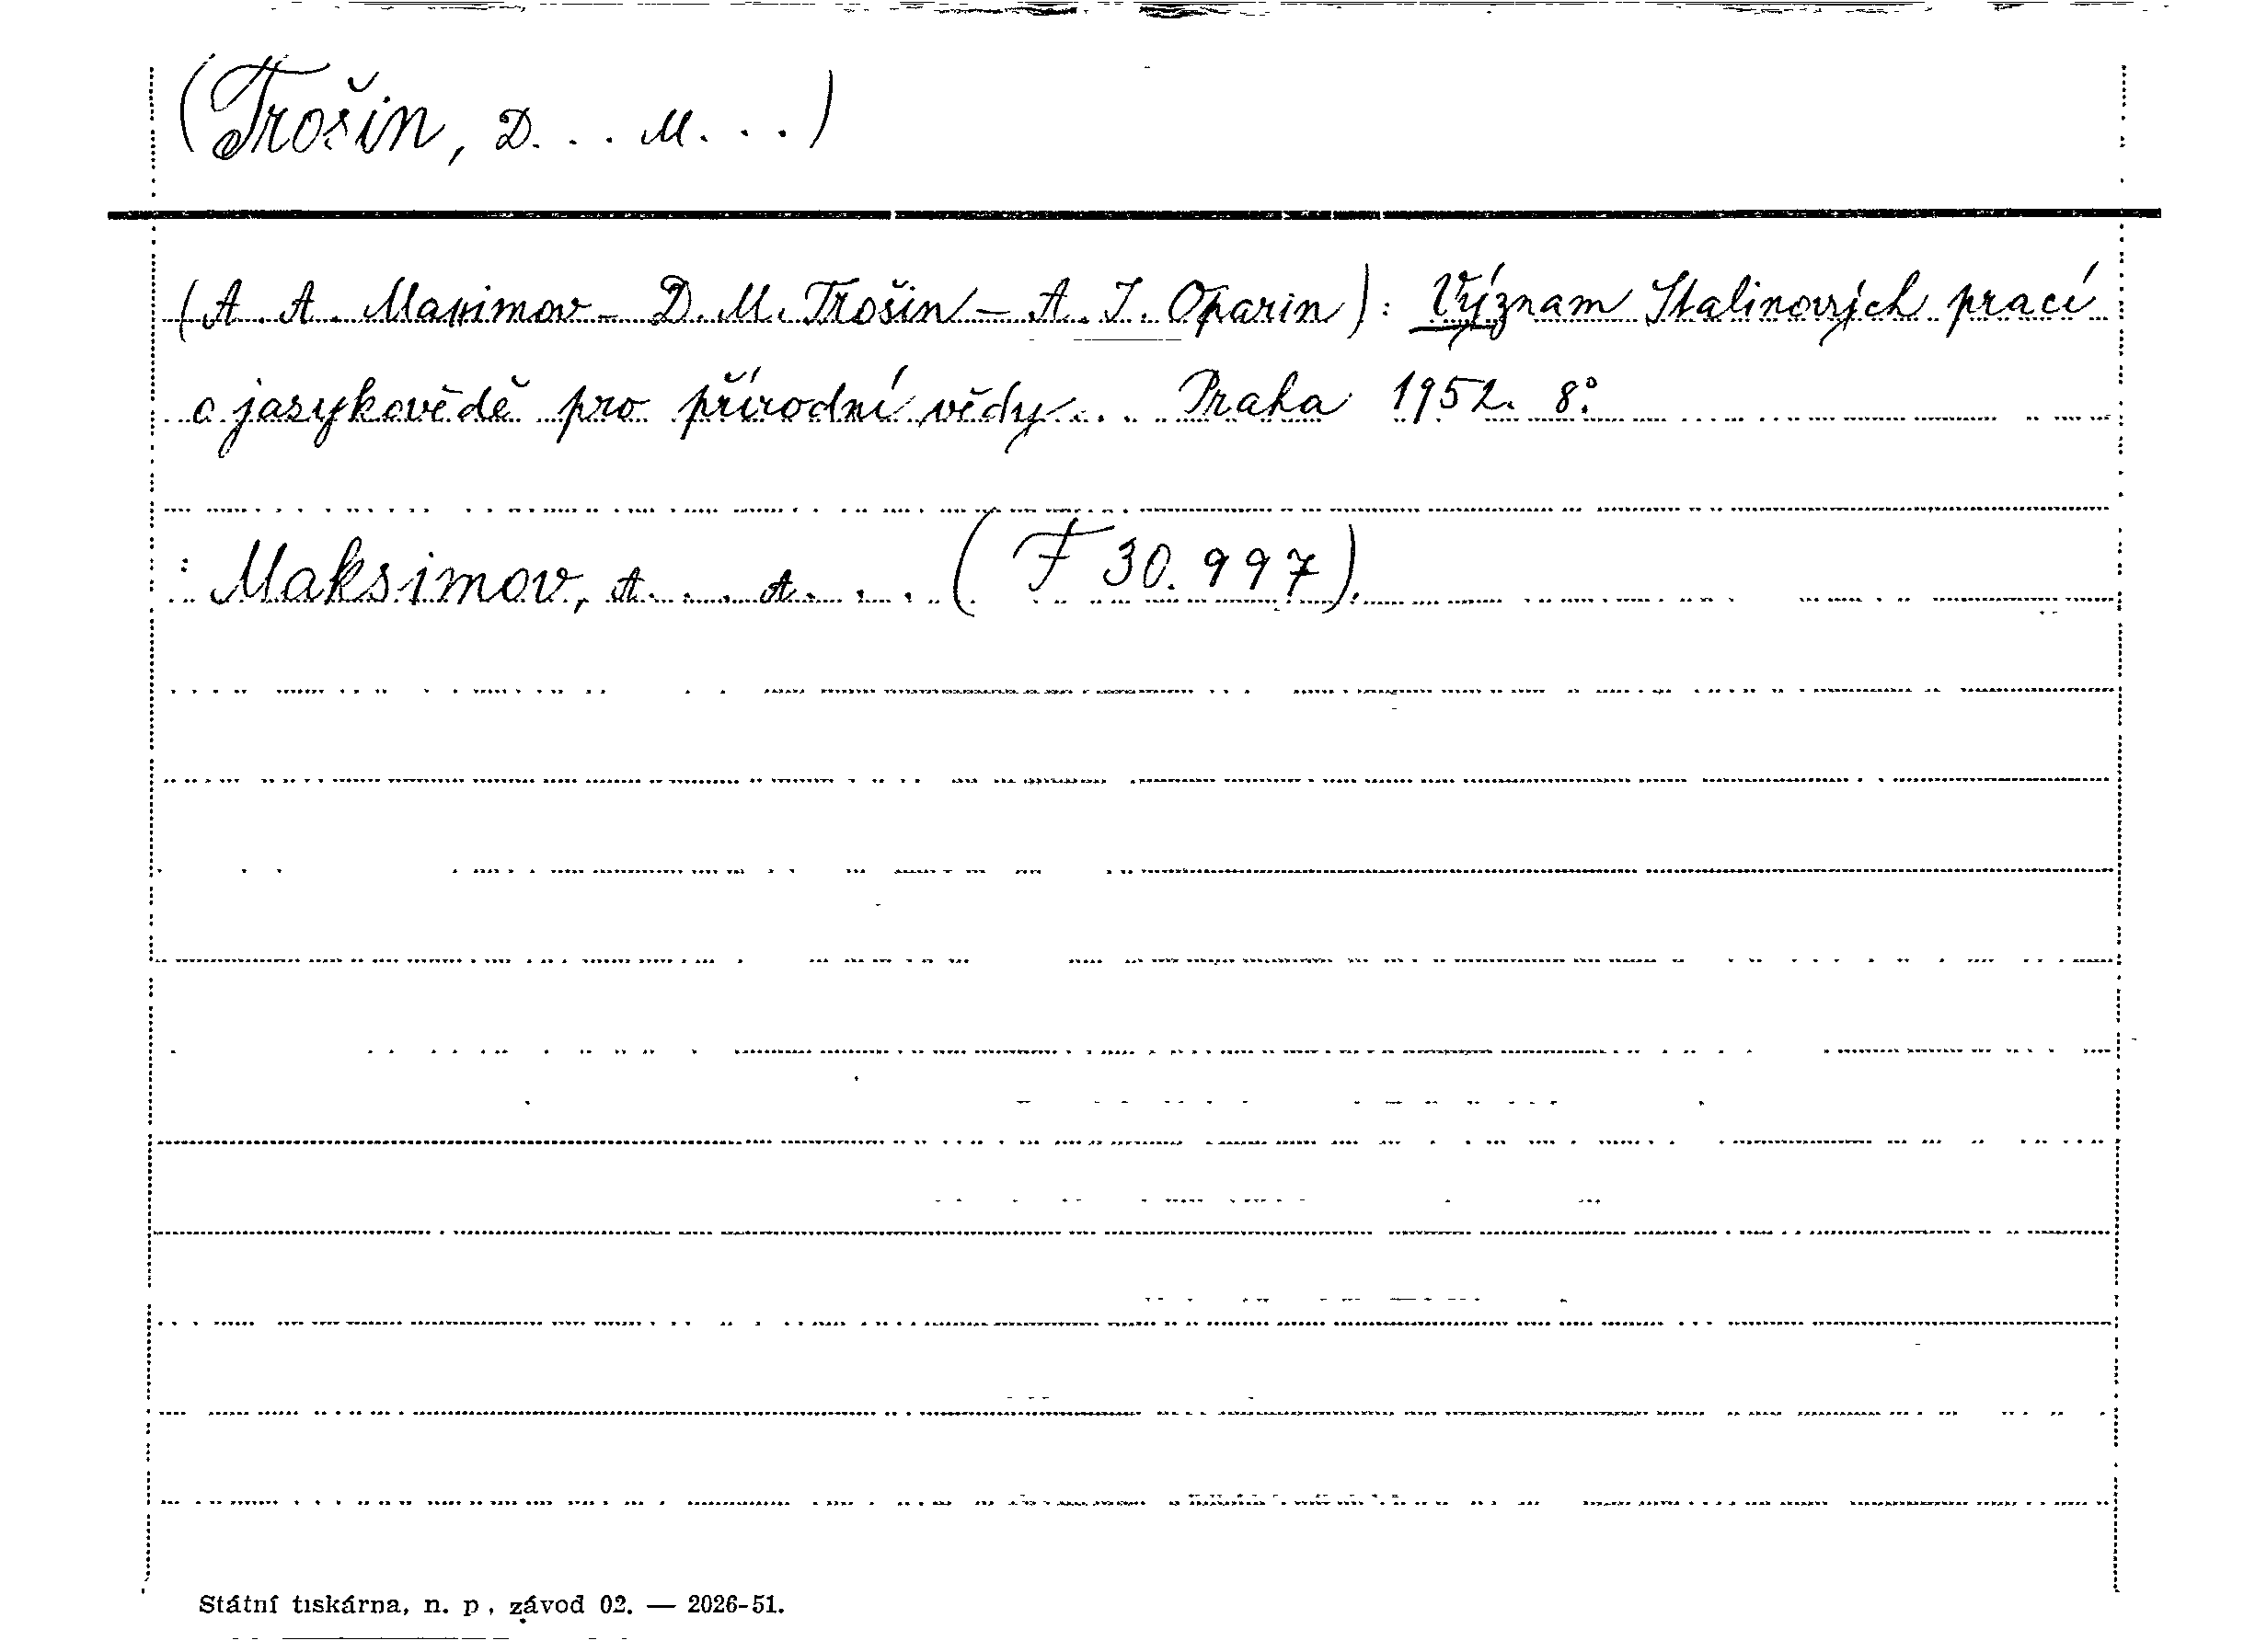 (Trošin, D... M...)
(A. A. Maximov - D. M. Trošin - A. I. Oparin): Význam Stalinových prací
o jazykovědě pro přírodní vědy... Praha 1952. 8°.
: Maksimov, A... A... (F 30.997).
Státní tiskárna, n. p., závod 02. — 2026-51.